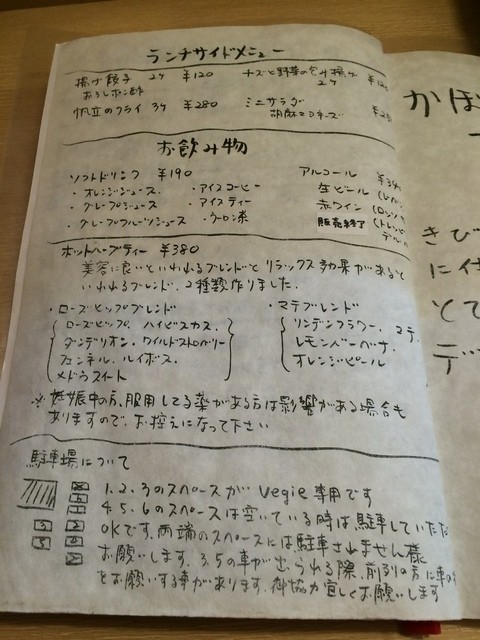 ランチサイドメニュー
揚げ餃子 2ケ ¥120
おろしポン酢
ナスと野菜の包み揚げ
2ケ
帆立のフライ 3ケ ¥280
ミニサラダ
胡麻マヨネーズ
お飲み物
ソフトドリンク ¥190
・オレンジジュース
・グレープジュース
・グレープフルーツジュース
・アイスコーヒー
・アイスティー
・ウーロン茶
アルコール
生ビール
赤ワイン
販売終了
ホットハーブティー ¥380
美容に良いといわれるブレンドとリラックス効果があると
いわれるブレンド、2種類作りました。
・ローズヒップブレンド
ローズヒップ、ハイビスカス、
ダンデリオン・ワイルドストロベリー
フェンネル、ルイボス、
メドウスイート
・マテブレンド
リンデンフラワー、マテ、
レモンバーベナ、
オレンジピール
※妊娠中の方、服用してる薬がある方は影響がある場合も
ありますので、お控えになって下さい
駐車場について
1.2.3のスペースが vegie 専用です
4.5.6のスペースは空いている時は駐車していただ
OKです。両端のスペースには駐車されません様
お願いします。3.5の車が出られる際、前列の方に車の
をお願いする事があります。御協力宜しくお願いします
かぼ
きび
に仕
そて
デ